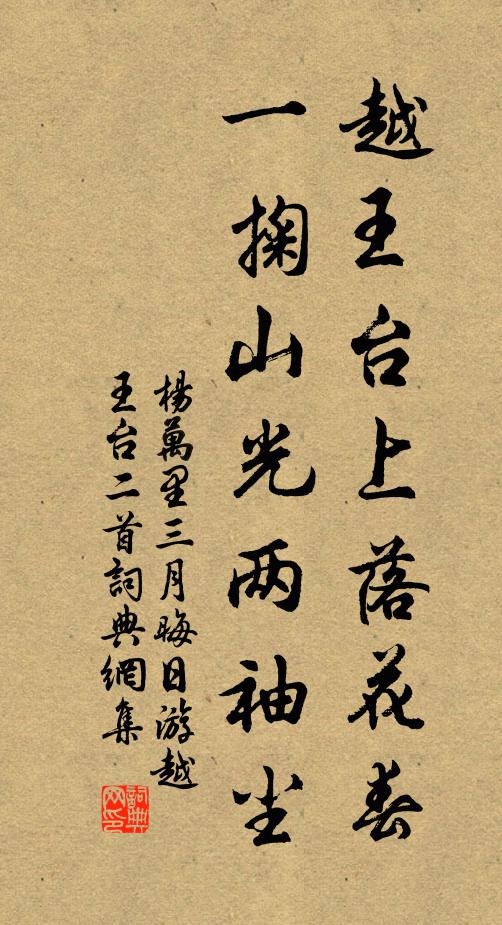 越王台上落花春
一掬山光两袖尘
楊萬里三月晦日游越
王台二首詞典網集
詞典网印